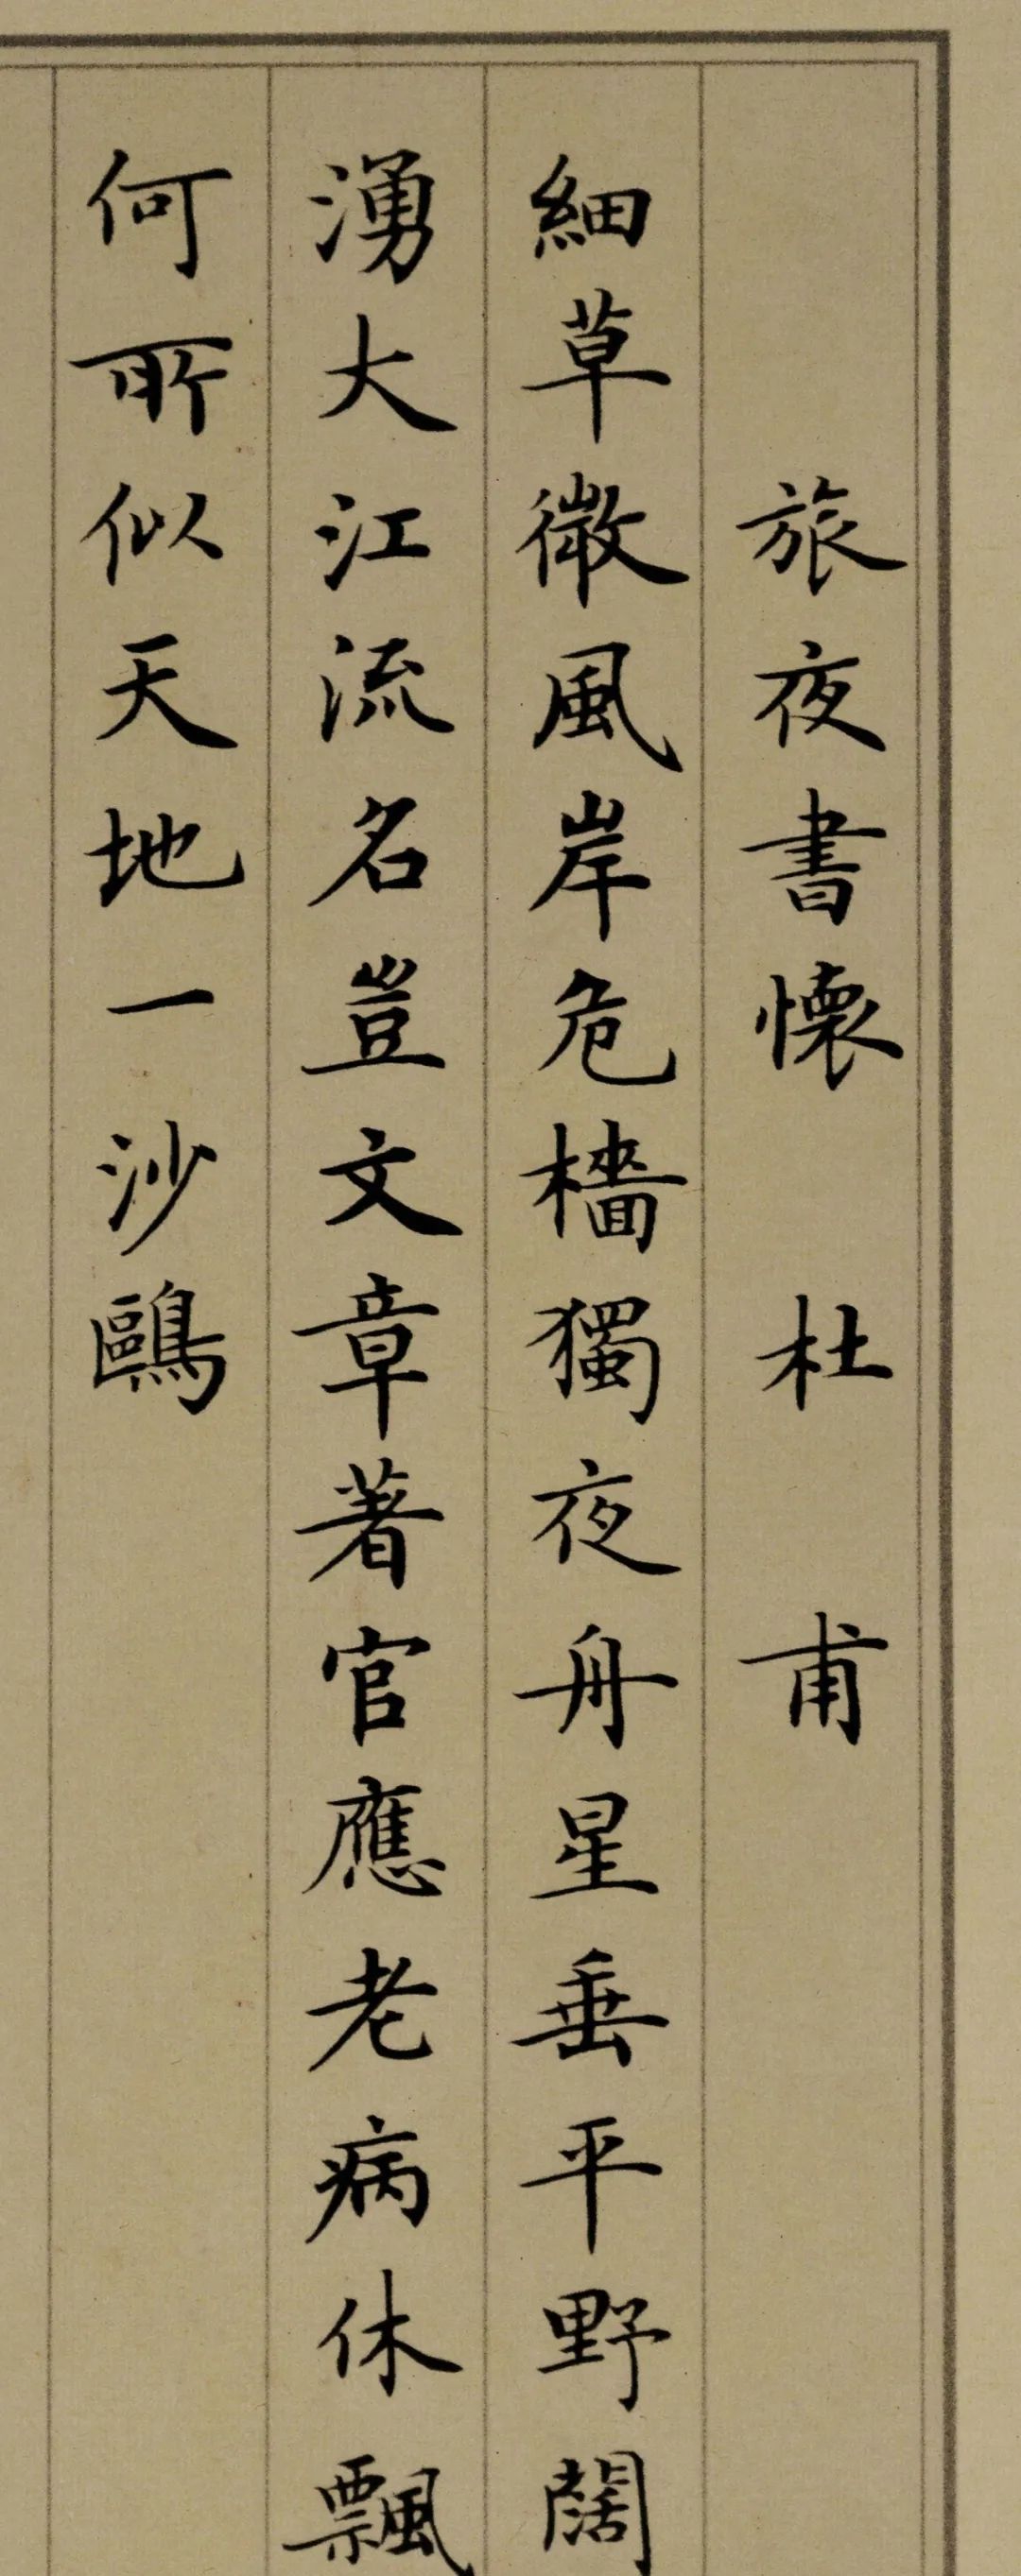 旅夜書懷 杜甫
細草微風岸危檣獨夜舟星垂平野闊
湧大江流名豈文章著官應老病休飄
何所似天地一沙鷗